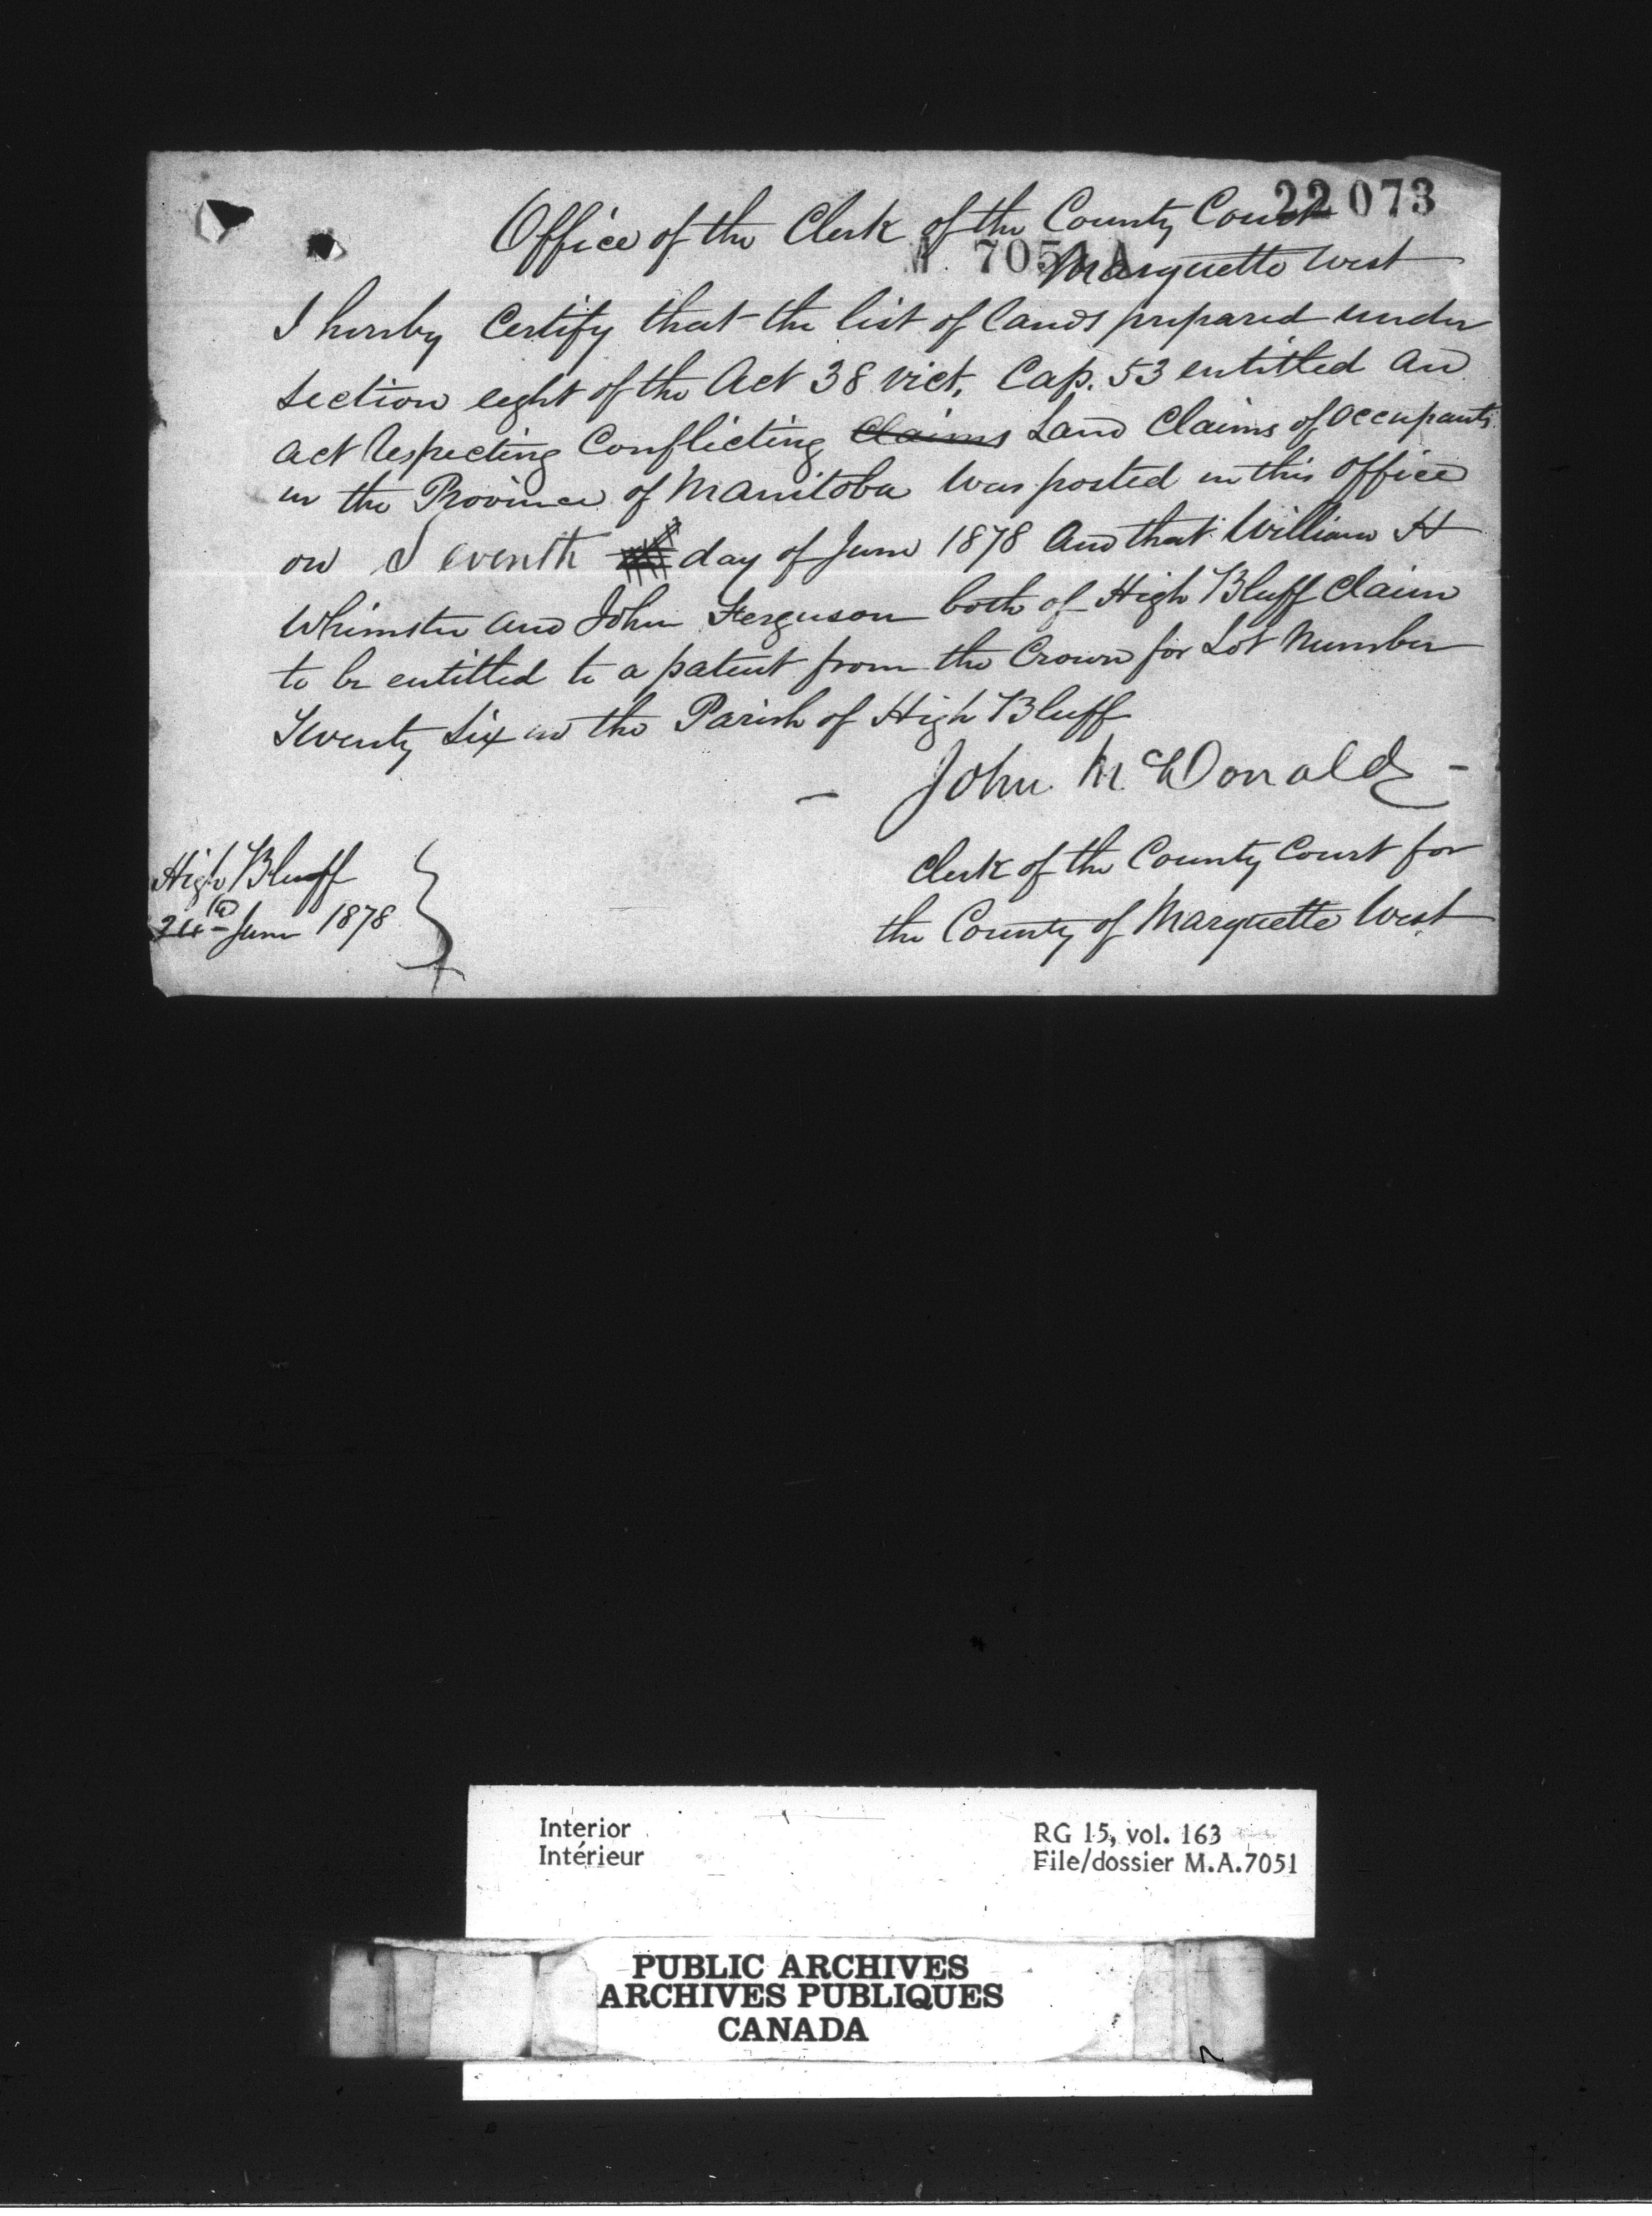 22073
Office of the Clerk of the County Court
M 7051 A
Marquette West
I hereby Certify that the list of lands prepared under
section eight of the Act 38 Vict, Cap. 53 entitled an
act Respecting Conflicting Claims Land Claims of occupants
in the Province of Manitoba was posted in this office
on Seventh day of June 1878 and that William H
Whimster and John Ferguson both of High Bluff Claim
to be entitled to a patent from the Crown for Lot Number
Seventy Six in the Parish of High Bluff
— John McDonald —
Clerk of the County Court for
the County of Marquette West
High Bluff
24th June 1878
Interior
Intérieur
RG 15, vol. 163
File/dossier M.A.7051
PUBLIC ARCHIVES
ARCHIVES PUBLIQUES
CANADA